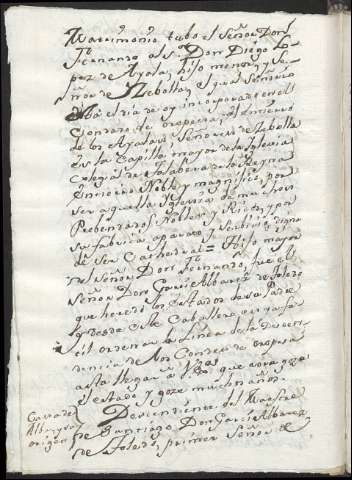 Matrimonio tubo el Señor Don
Fernando al Sr. Don Diego Lo
pez de Ayala, hijo menor, y Se
ñor de Zebolla, el qual Señorio
está el dia de oy incorporado en el
Condado de oropesa; el entierro
de los Ayalas, Señores de Zebolla
es la Capilla mayor de la Iglesia
Colegial de Talabera de la Reyna
Entierro Noble y magnifico, por
ser aquella Iglesia de muchos
Prebendados, Nobles, y Ricos, y por
su fabrica, aparato y servicio digna
de ser Cathedral = Hijo mayor
del Señor Don Fernando, fue el
Señor Don Garcia Albarez de Toledo
que heredó los Estados de su Padre
y desde este Caballero en la fa
cil ordena la linea de la Descen
dencia de los Condes de oropesa
asta llegar a VExa que oy goza
el estado y goze muchos años.
Casa de
Alba y su
origen
Descendiente del Maestre
de Santiago Don Garcia Albarez
de Toledo, primer Señor de